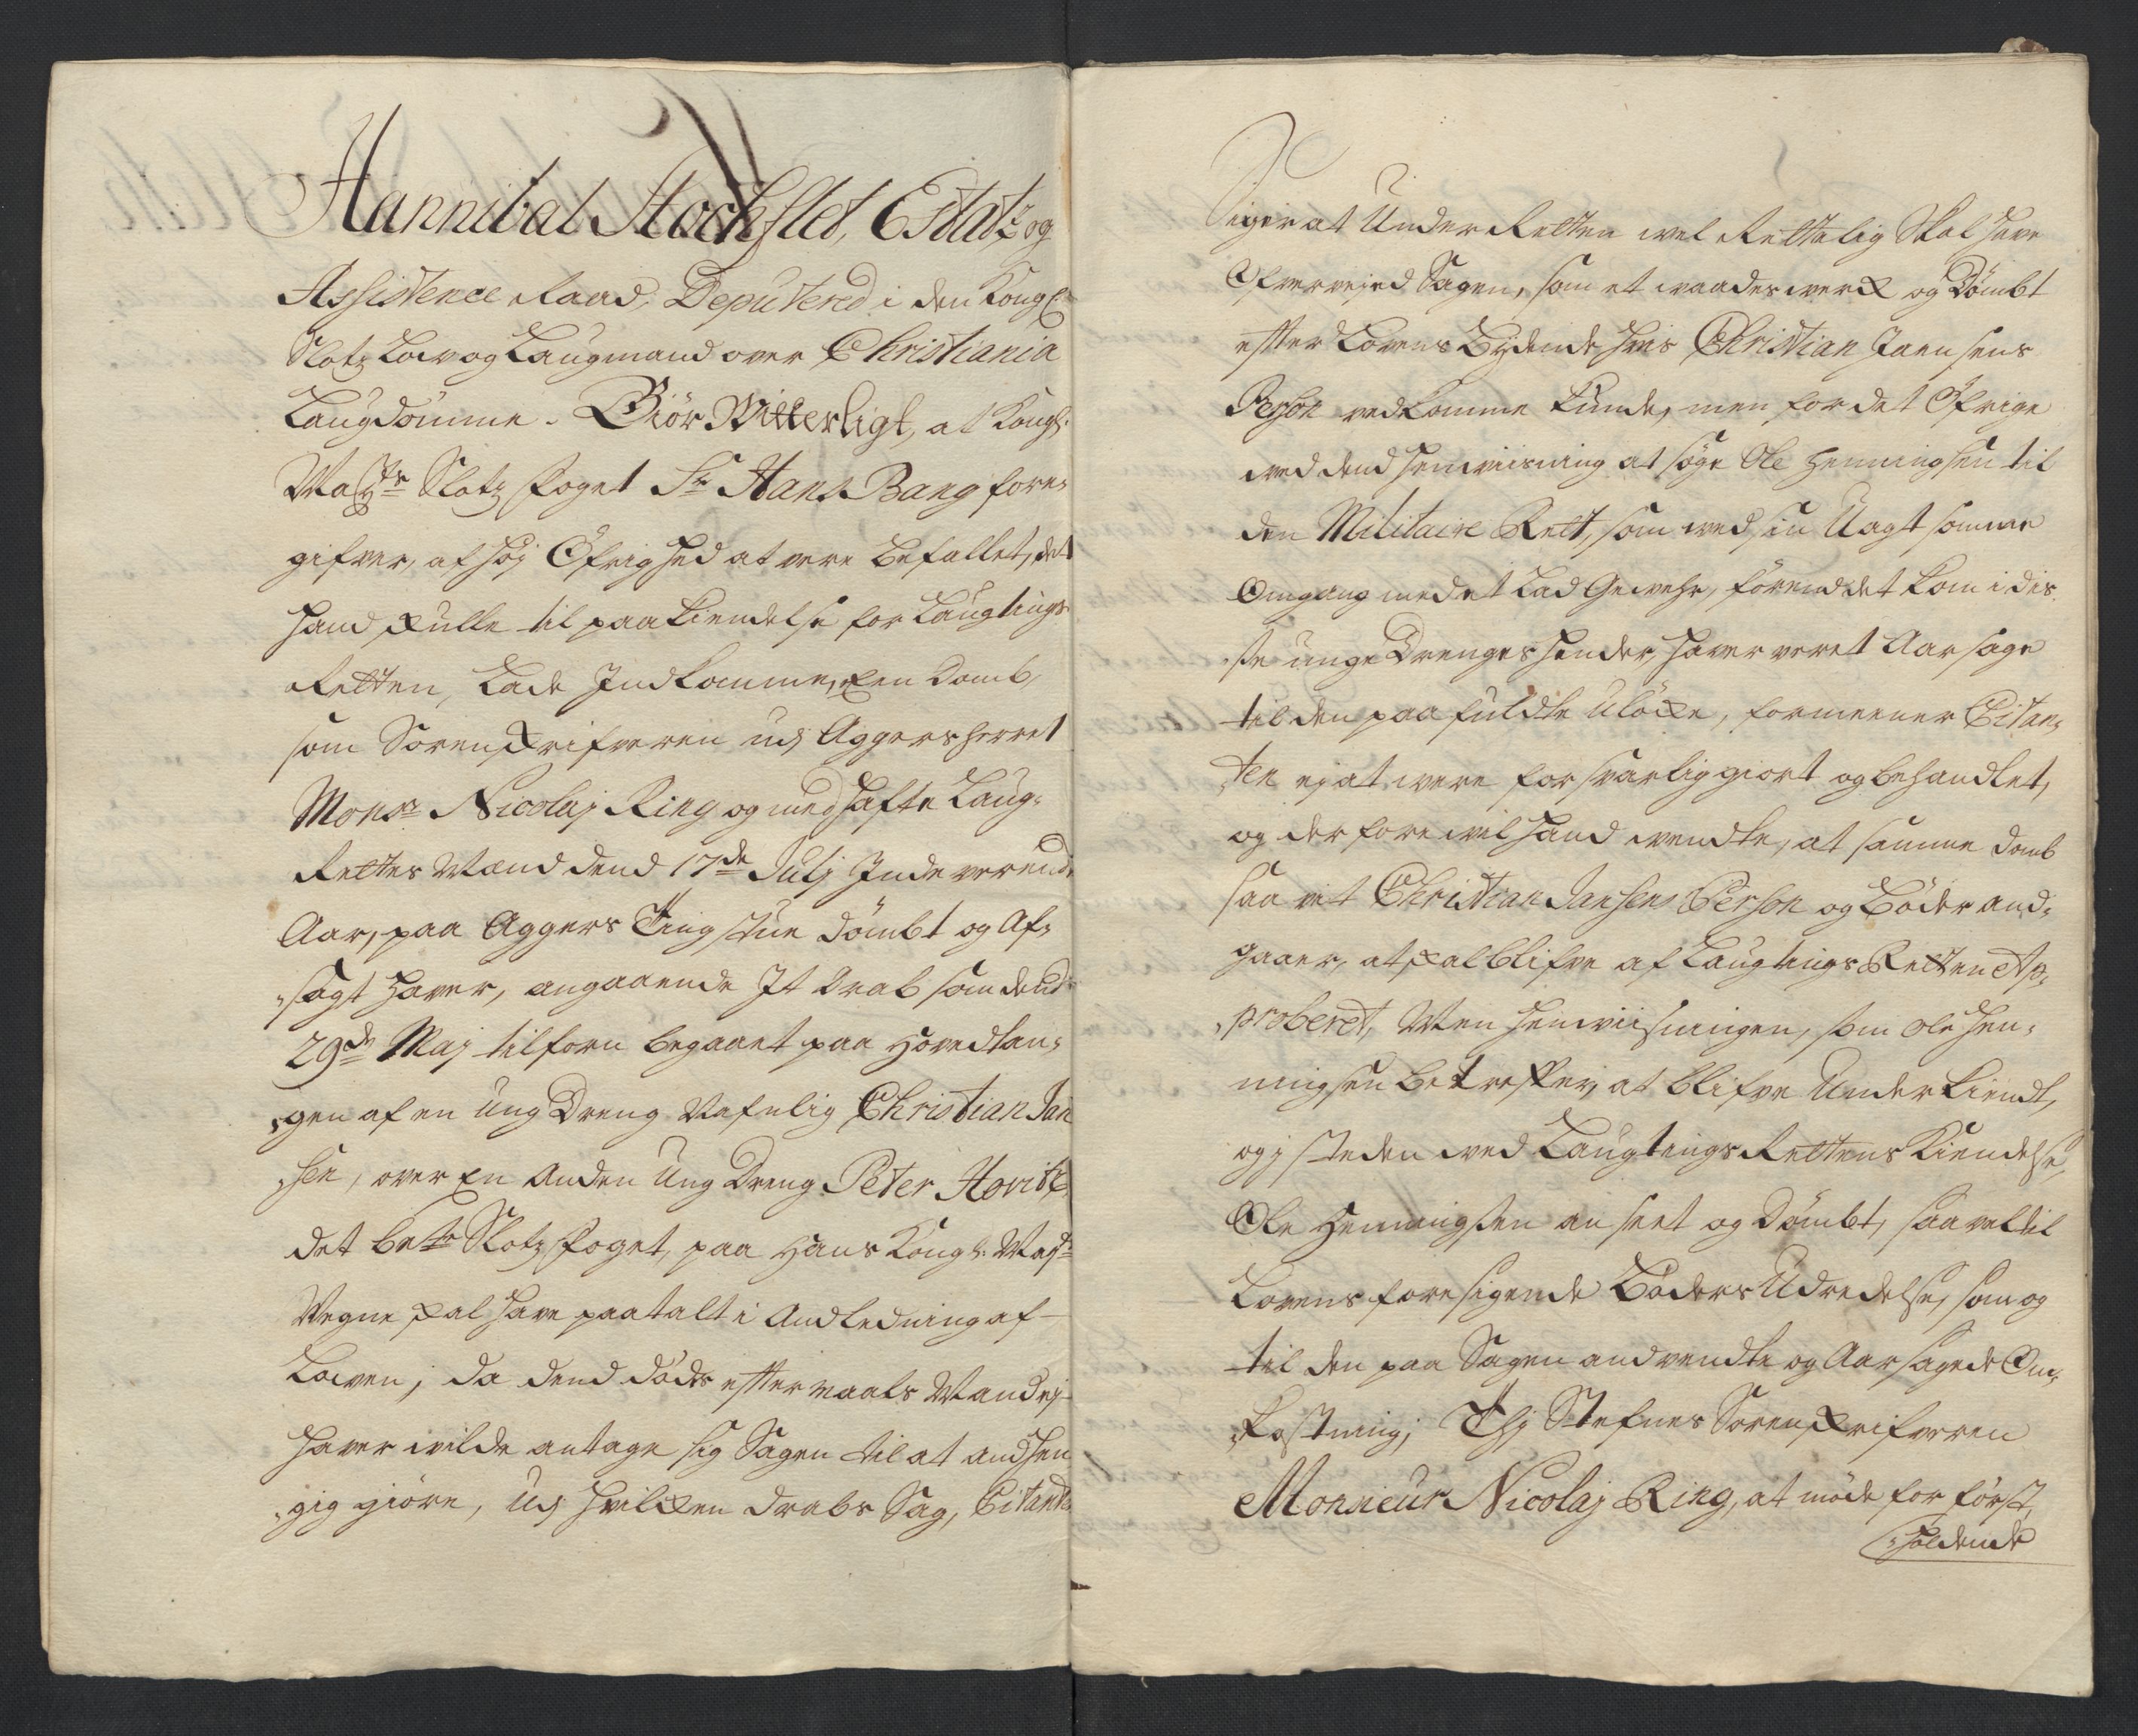 Hannibal Stockflet, Etatz og
Assistence Raad, Deputered i den Kongl:
Slotz Low og Laugmand over Christiania
Laugdømme. Giør Witterligt, at Kongl:
May:ts Slotz Foget Sr Hans Bang fore,
gifver, af høj Øfrighed at vere Befallet, det
Hand skulle til paakiendelse for Laugtings
Retten, Lade Indkomme, Een Domb,
som Sorenskrifveren udj Aggersherret
Monsr Nicolaj Ring og medhafte Laug,
Rettes Mænd dend 17de Julj Indeverende
Aar, paa Aggers Tingstue dømbt og Af,
,sagt Haver, angaaende It Drab som dend
29de Maj tilforn begaaet paa Hovedtan,
,gen af en Ung Dreng Nafnlig Christian Jan
,sen, over En Anden Ung Dreng Peter Horitz
det bete Slotz Foget, paa Hans Kongl: Mayts
Vegne skal Have paatalt i Andledning af
Lowen; da dend dødes efftermaals Mand ej
Haver wilde antage sig Sagen til at andhen
,gig giøre, Udj Hvilken Drabs Sag, Citanten
Siger at Under Retten wel Rettelig Skal Have
Ofvervejed Sagen, som et waadeswerk og Dømbt
effter Lovens Bydende Hvis Christian Jaensens
Person vedkomme kunde, men for det Øfrige
wed dend Henviisning at søge Ole Henningsen til
den Militaire Rett, som wed sin Uagtsomme
Omgang med et Lad Gewehr, førend det kom i dis
,se unge Drenges Hender, Haver veret Aarsage
til den paafuldte Uløcke, formeener Citan,
,ten ej at were forsvarlig giort og behandlet,
og derfore wil Hand wendte, at samme Domb
saa vit Christian Jansens Person og Bøder and,
gaaer, at skal blifve af Laugtings Retten Ap,
,proberet, Men Henviisningen, som Ole Hen,
ningsen betreffer, at blifve Underkiendt,
og j steden wed Laugtings Rettens Kiendelse,
Ole Henningsen anseet og Dømbt, saa vel til
Lovens foresigende Bøders Udredelse, som og
til den paa Sagen andvendte og Aarsagede Om,
,kostning; Thj Stefnes Sorenskrifveren
Monsieur Nicolaj Ring, at møde for først
,holdende